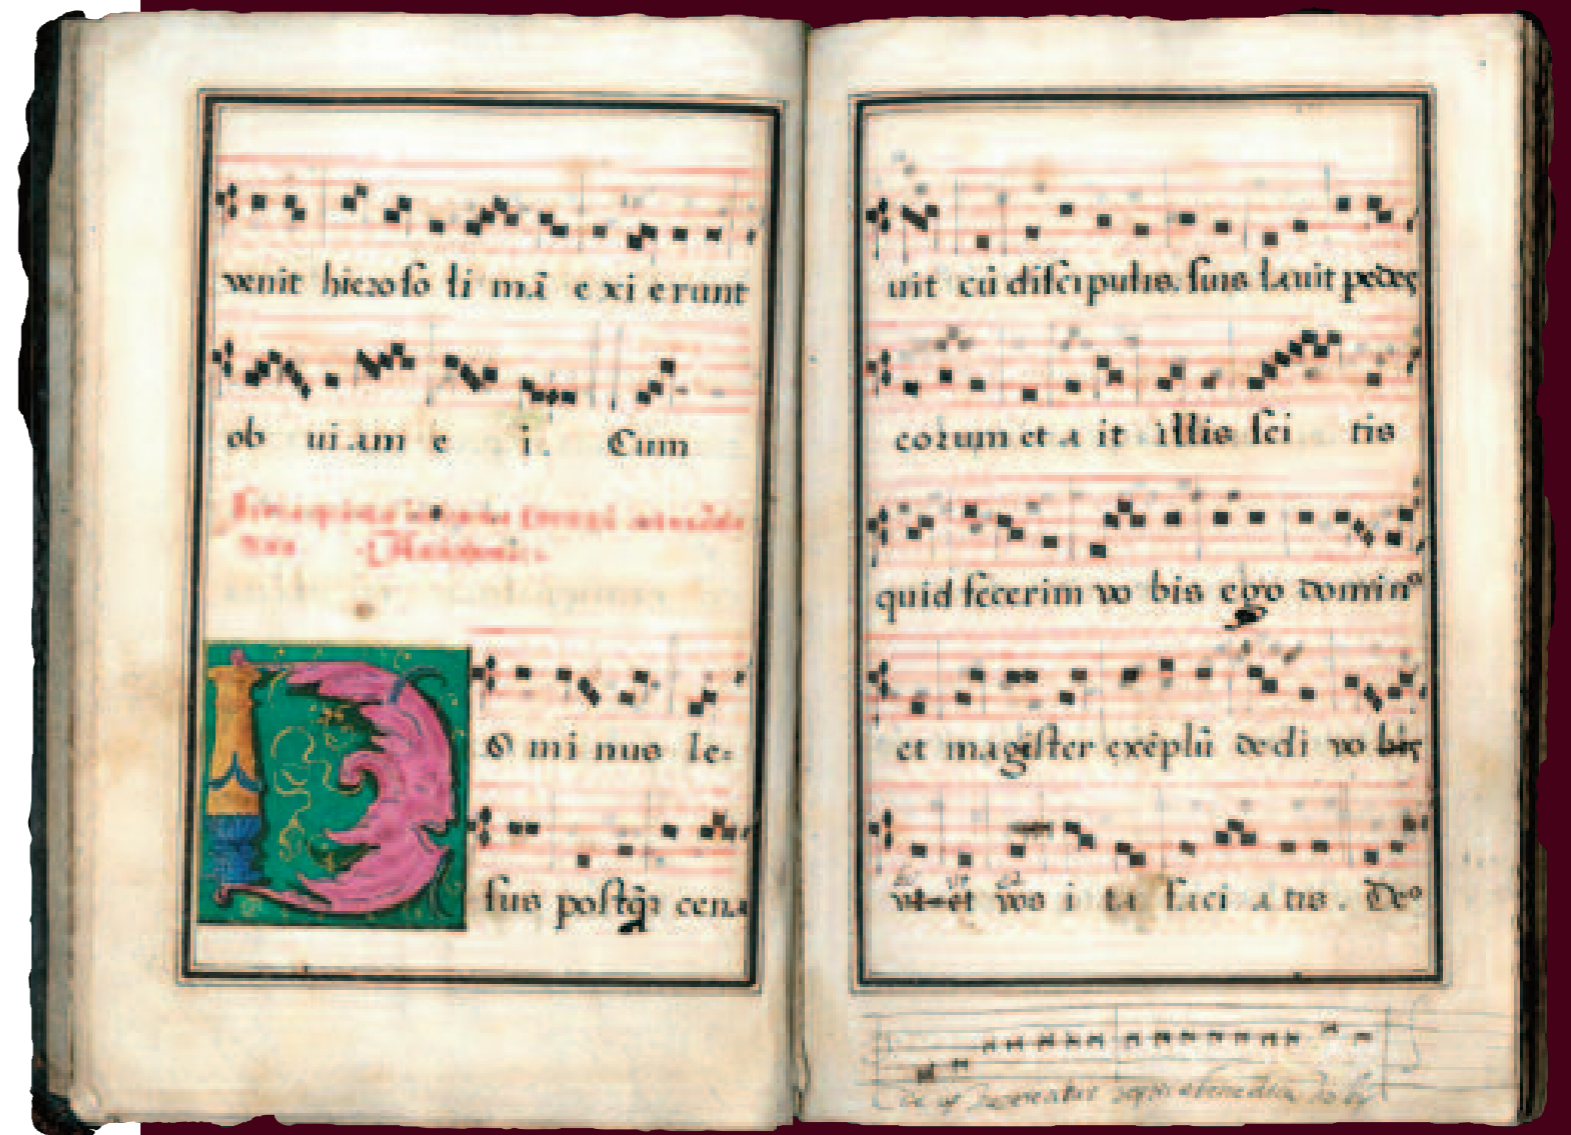 venit hieroso li mā e xi erunt
ob uiam e i. Cum
O mi nus Ie-
sus postq̄ cena
uit cū discipulis suis lauit pedes
eorum et a it illis sci tis
quid fecerim vo bis ego dominꝰ
et magister exēplū dedi vo bis
vt et vos i ta faci a tis. Deꝰ